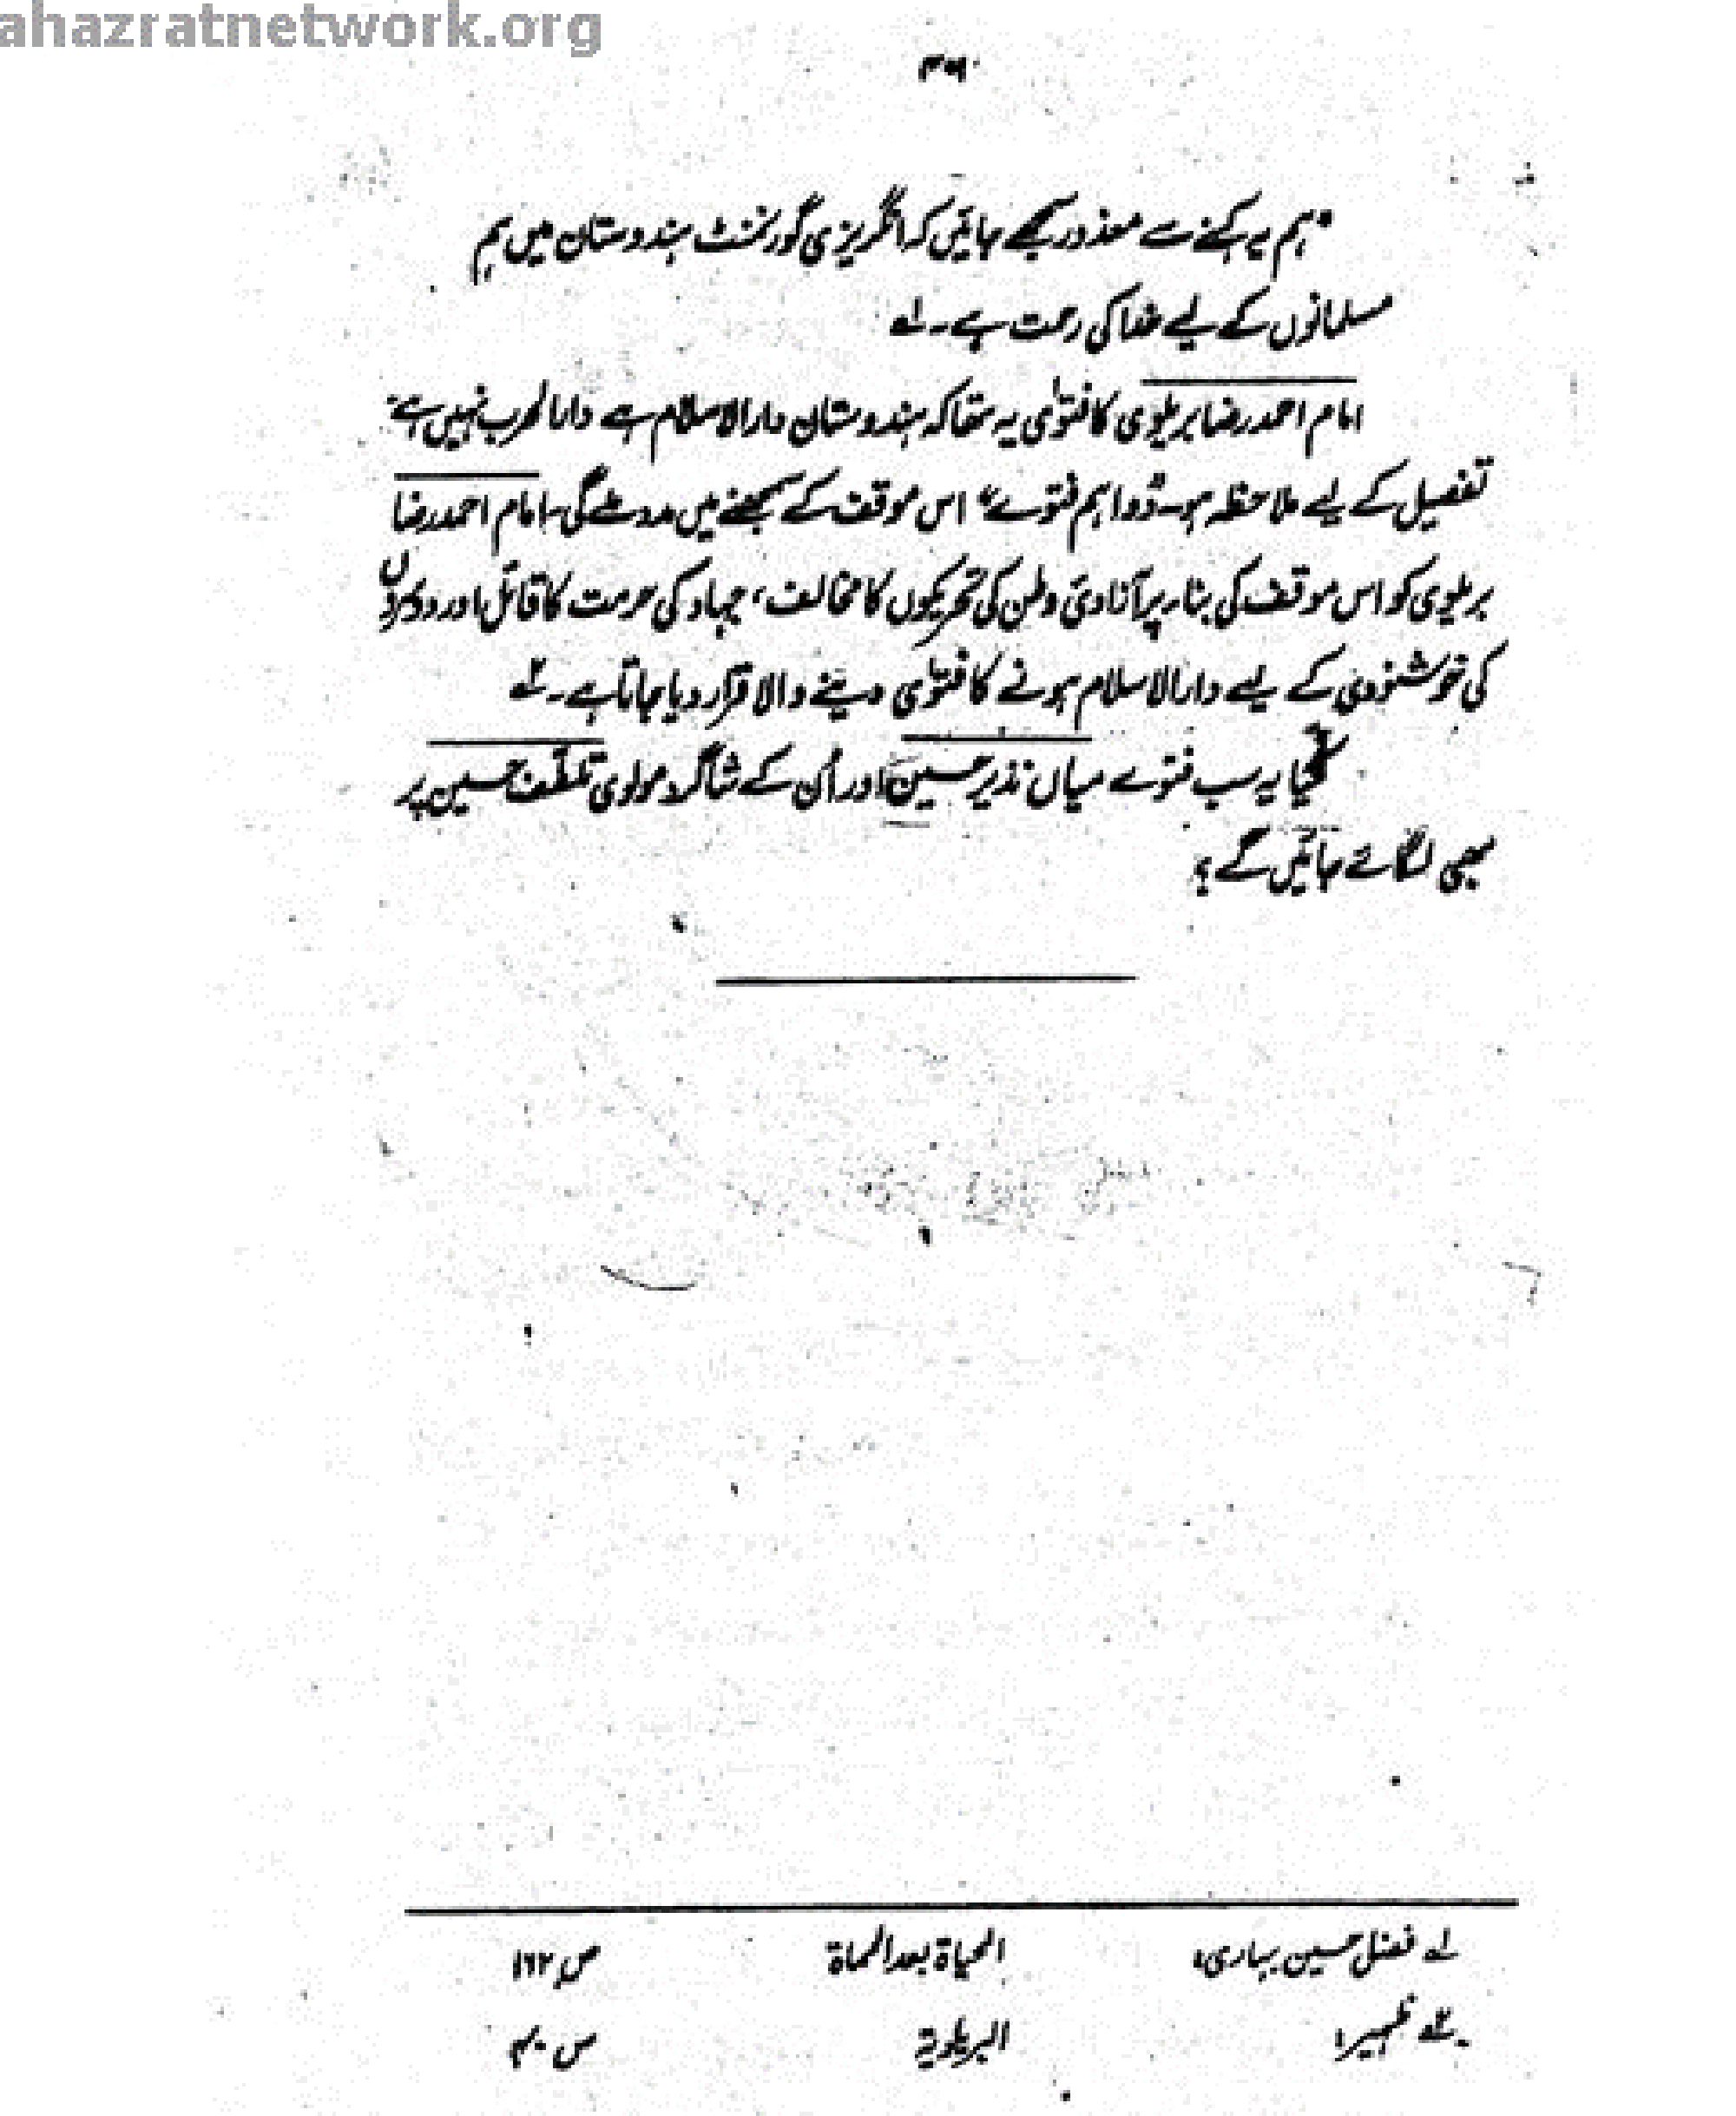 ahazratnetwork.org
"ہم یہ کہنے سے معذور سمجھے جائیں کہ انگریزی گورنمنٹ ہندوستان میں ہم
مسلمانوں کے لیے خدا کی رحمت ہے۔ ۱ے
امام احمد رضا بریلوی کا فتوٰی یہ تھا کہ ہندوستان دارالاسلام ہے دارالحرب نہیں ہے۔
تفصیل کے لیے ملاحظہ ہو۔ "دو اہم فتوے" اس موقف کے سمجھنے میں مدد ملے گی۔ امام احمد رضا
بریلوی کو اس موقف کی بناء پر آزادئ وطن کی تحریکوں کا مخالف، جہاد کی حرمت کا قائل اور
کی خوشنودی کے لیے دارالاسلام ہونے کا فتوٰی دینے والا قرار دیا جاتا ہے۔ ۲ے
کیا یہ سب فتوے میاں نذیر حسین اور اُن کے شاگرد مولوی تلطف حسین پر
بھی لگائے جائیں گے؟
۱ے فضل حسین بہاری، الحیاۃ بعد المماۃ ص ۱۶۲
۲ے ظہیر، البریلویۃ ص ۴۰